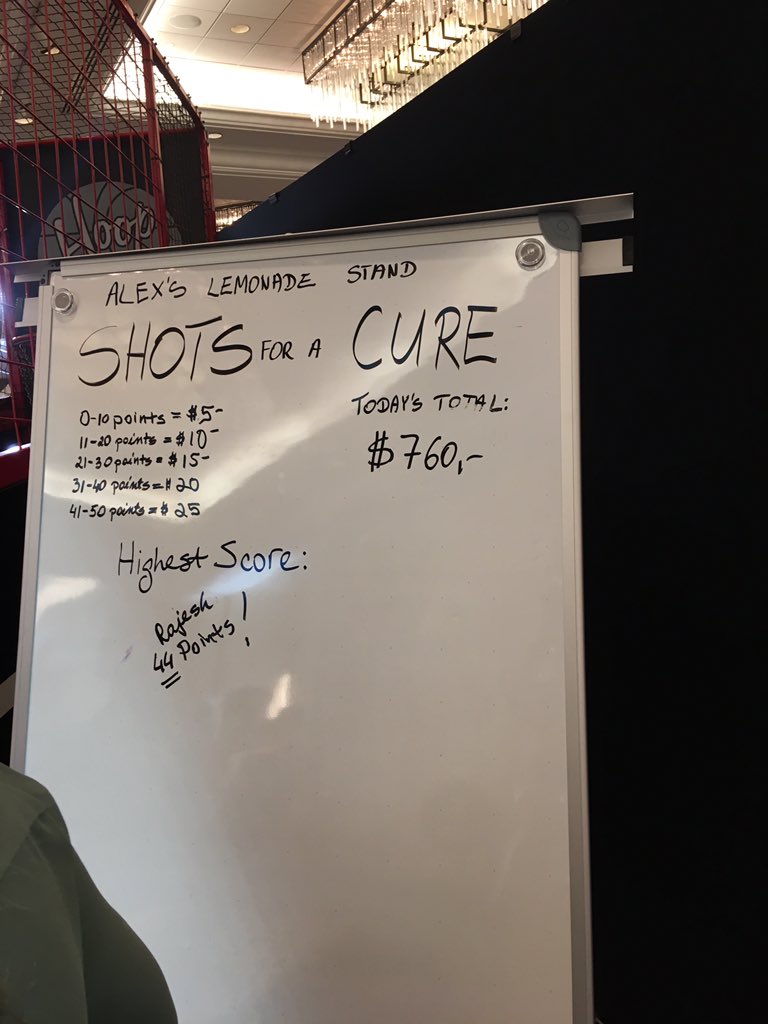 ALEX'S LEMONADE STAND
SHOTS FOR A CURE
0-10 points = $5-
11-20 points = $10-
21-30 points = $15-
31-40 points = $20
41-50 points = $25
TODAY'S TOTAL:
$760,-
Highest Score:
Rajesh
44 Points!